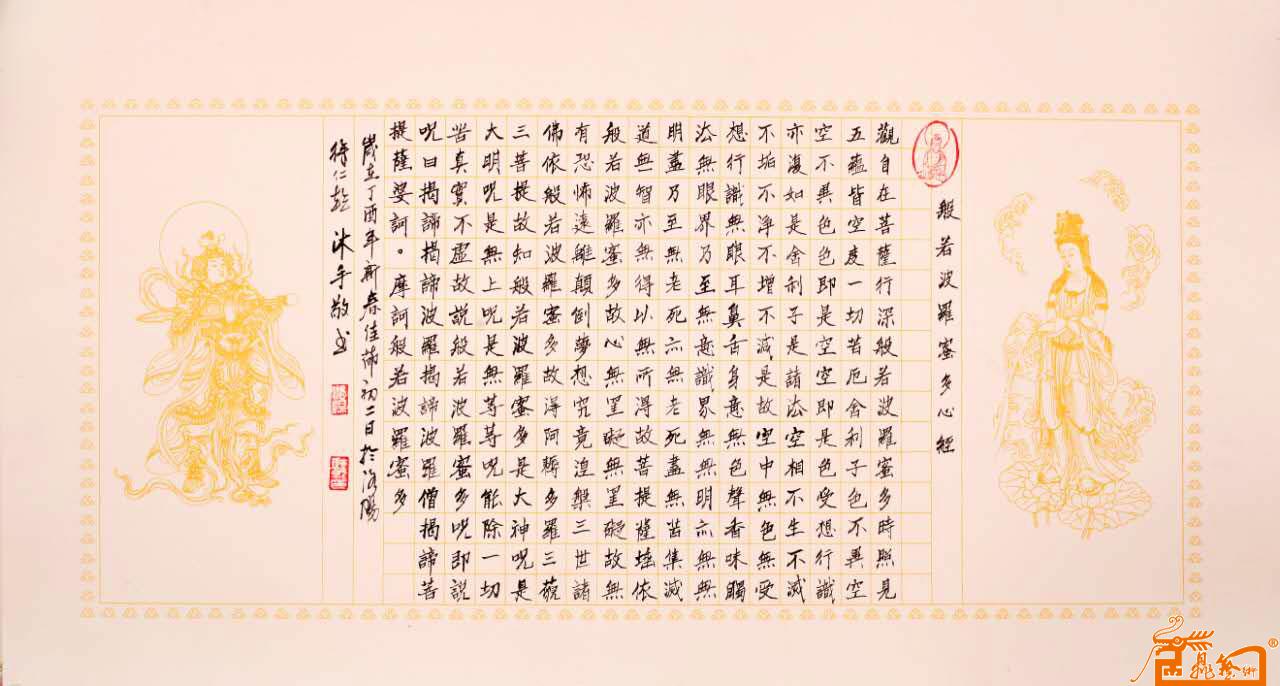 般若波羅蜜多心經
觀自在菩薩行深般若波羅蜜多時照見
五蘊皆空度一切苦厄舍利子色不異空
空不異色色即是空空即是色受想行識
亦復如是舍利子是諸法空相不生不滅
不垢不淨不增不減是故空中無色無受
想行識無眼耳鼻舌身意無色聲香味觸
法無眼界乃至無意識界無無明亦無無
明盡乃至無老死亦無老死盡無苦集滅
道無智亦無得以無所得故菩提薩埵依
般若波羅蜜多故心無罣礙無罣礙故無
有恐怖遠離顛倒夢想究竟涅槃三世諸
佛依般若波羅蜜多故得阿耨多羅三藐
三菩提故知般若波羅蜜多是大神呪是
大明呪是無上呪是無等等呪能除一切
苦真實不虛故説般若波羅蜜多呪即説
呪曰揭諦揭諦波羅揭諦波羅僧揭諦菩
提薩婆訶。摩訶般若波羅蜜多
歲在丁酉年新春佳節初二日於洛陽
徐仁 沐手敬書